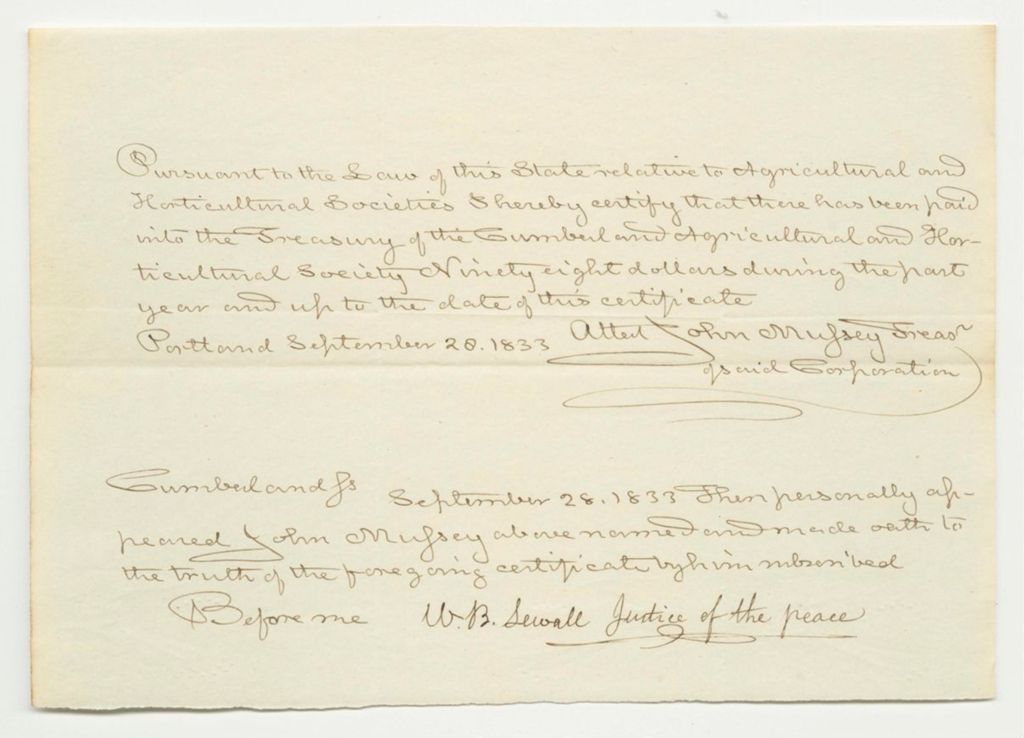 Pursuant to the Law of this State relative to Agricultural and
Horticultural Societies I hereby certify that there has been paid
into the Treasury of the Cumberland Agricultural and Hor-
ticultural Society Ninety eight dollars during the past
year and up to the date of this certificate
Portland September 28. 1833 Attest John Mussey Treasr
of said Corporation
Cumberland ss
September 28. 1833 Then personally ap-
peared John Mussey above named and made oath to
the truth of the foregoing certificate by him subscribed
Before me W. B. Sewall Justice of the peace